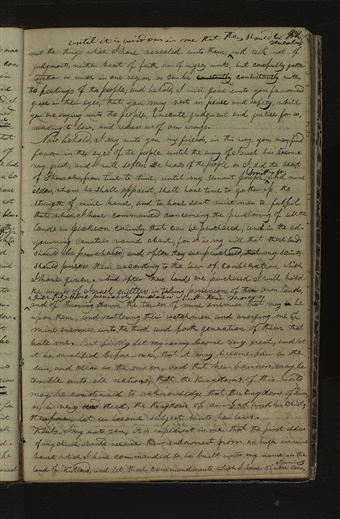 until it is wisdom in me that they should be
not the things which I have revealed unto them, talk not of
judgment, neither boast of faith nor of mighty works, but carefully gather
together as much in one region as can be consistently with
the feelings of the people, and behold, I will give unto you favor and
grace in their eyes, that you may rest in peace and safety, while
you are saying unto the people, Execute judgment and justice for us,
according to law, and redress us of our wrongs.
Now behold, I say unto you my friends, in this way you may find
favor in the eyes of the people until the army of Israel has become
very great, and I will soften the hearts of the people as I did the heart
of Pharaoh, from time to time, until my servant Joseph, and mine
elders whom he shall appoint, shall have time to gather up the
strength of mine house, and to have sent wise men to fulfil
that which I have commanded concerning the purchasing of all the
lands in Jackson county, that can be purchased, and in the ad-
joining counties round about, for it is my will that these lands
should be purchased, and after they are purchased that my saints
should possess them according to the laws of consecration which
I have given. And after these lands are purchased, I will hold
the armies of Israel guiltless in taking possession of their own lands,
which they have previously purchased with their monies,
and of throwing down the towers of mine enemies that may be
upon them, and scattering their watchmen and avenging me of
mine enemies, unto the third and fourth generation of them that
hate me. But firstly let my army become very great, and let
it be sanctified before me, that it may become fair as the
sun, and clear as the moon, and that her banners may be
terrible unto all nations, that the kingdoms of this world
may be constrained to acknowledge that the kingdom of Zion
is in very deed, the kingdom of our God and his Christ,
therefore let us become subject unto her laws.
Verily, I say unto you, it is expedient in me that the first elders
of my church should receive their endowment from on high in mine
house which I have commanded to be built unto my name in the
land of Kirtland, and let those commandments which I have given